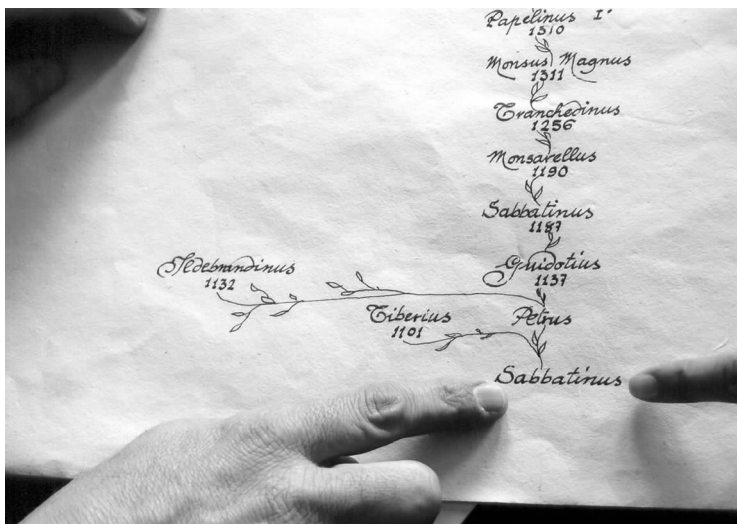 Papelinus I°
1310
Monsus Magnus
1311
Tranchedinus
1256
Monsarellus
1190
Sabbatinus
1187
Ildebrandinus
1132
Guidotius
1137
Tiberius
1101
Petrus
Sabbatinus